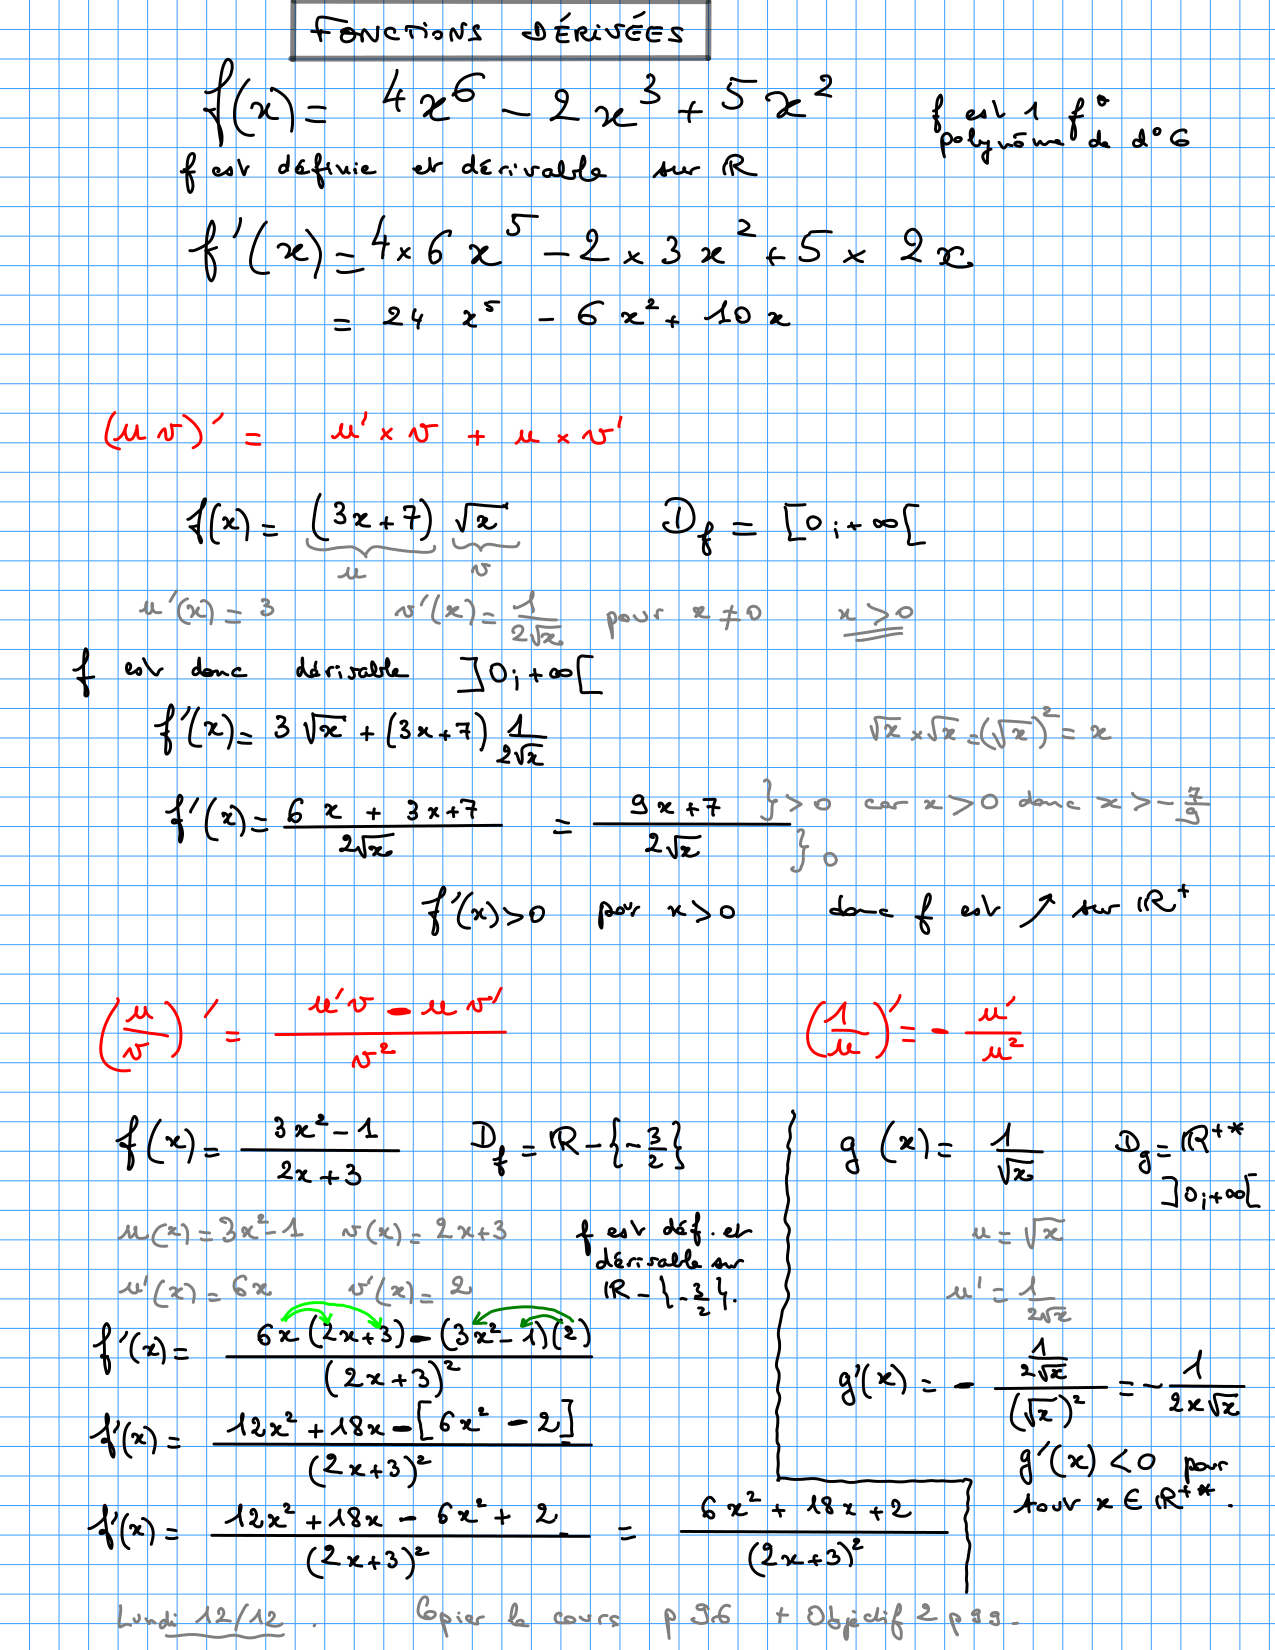 FONCTIONS DÉRIVÉES
f(x) = 4x⁶ - 2x³ + 5x²
f est 1 f°
polynôme de d° 6
f est définie et dérivable sur ℝ
f'(x) = 4×6 x⁵ - 2 × 3x² + 5 × 2x
= 24 x⁵ - 6x² + 10x
(uv)' = u' × v + u × v'
f(x) = (3x+7) √x D_f = [0;+∞[
u v
u'(x) = 3 v'(x) = 1/(2√x) pour x ≠ 0 x > 0
f est donc dérivable ]0;+∞[
f'(x) = 3√x + (3x+7) 1/(2√x) √x × √x = (√x)² = x
f'(x) = (6x + 3x+7)/(2√x) = (9x+7)/(2√x) } > 0 car x > 0 donc x > -7/9
} 0
f'(x) > 0 pour x > 0 donc f est ↗ sur ℝ⁺
(u/v)' = (u'v - uv')/v² (1/u)' = - u'/u²
f(x) = (3x²-1)/(2x+3) D_f = ℝ - {-3/2}
u(x) = 3x²-1 v(x) = 2x+3
u'(x) = 6x v'(x) = 2
f est déf. et
dérivable sur
ℝ - {-3/2}.
f'(x) = (6x(2x+3) - (3x²-1)(2))/(2x+3)²
f'(x) = (12x² + 18x - [6x² - 2])/(2x+3)²
f'(x) = (12x² + 18x - 6x² + 2)/(2x+3)² = (6x² + 18x + 2)/(2x+3)²
g(x) = 1/√x D_g = ℝ⁺*
]0;+∞[
u = √x
u' = 1/(2√x)
g'(x) = - (1/(2√x))/(√x)² = - 1/(2x√x)
g'(x) < 0 pour
tout x ∈ ℝ⁺*.
Lundi 12/12. Copier le cours p 96 + Objectif 2 p 99.